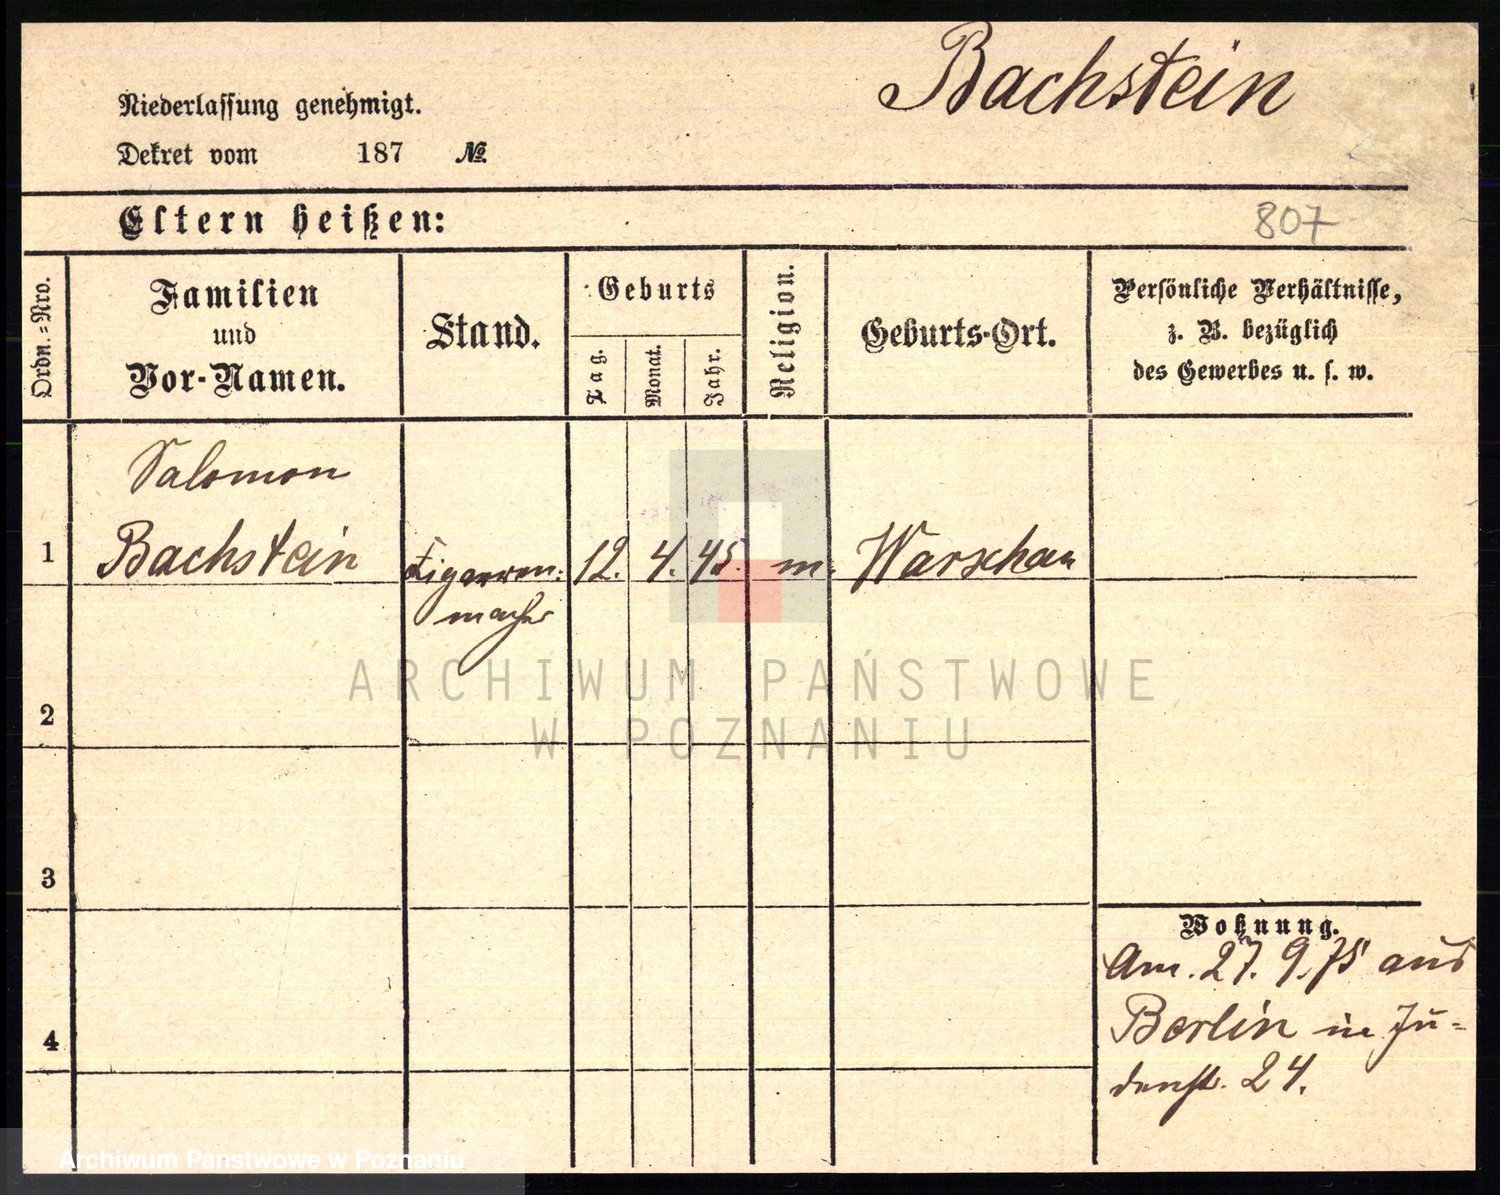 Bachstein
Niederlassung genehmigt.
Dekret vom 187 №
Eltern heißen:
807
Ordn.=Nro.
Familien
und
Vor-Namen.
Stand.
Geburts
Tag.
Monat.
Jahr.
Religion.
Geburts-Ort.
Persönliche Verhältnisse,
z. B. bezüglich
des Gewerbes u. s. w.
Salomon
1 Bachstein Zigarren- 12. 4. 45. m. Warschau
macher
ARCHIWUM PAŃSTWOWE
W POZNANIU
2
3
Wohnung.
Am. 27. 9. 75 aus
Berlin in Ju-
denstr. 24.
4
Archiwum Państwowe w Poznaniu